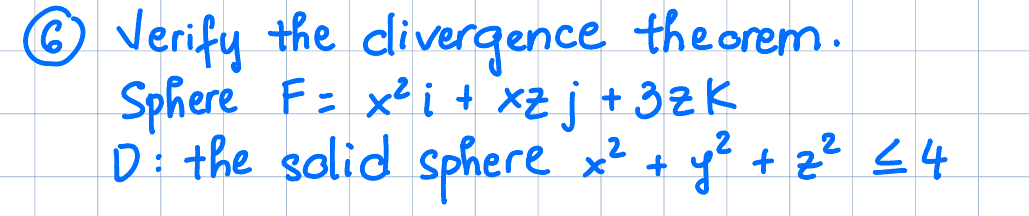 ⑥ Verify the divergence theorem.
Sphere F = x² i + xz j + 3zk
D: the solid sphere x² + y² + z² ≤ 4